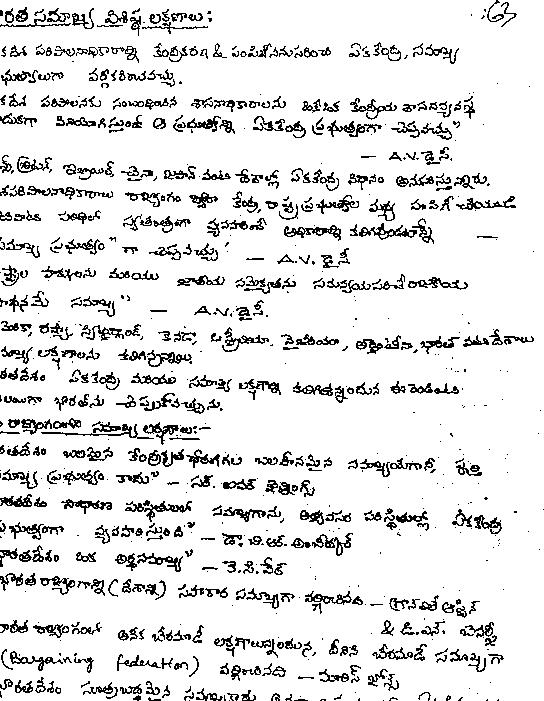 రత సమాఖ్య విశిష్ట లక్షణాలు : 63
కదేశ పరిపాలనాధికారాన్ని కేంద్రీకరణ & పంపిణీననుసరించి ఏకకేంద్ర, సమాఖ్య
భుత్వాలుగా వర్గీకరించవచ్చు.
కదేశ పరిపాలనకు సంబంధించిన శాసనాధికారాలను ఒకేఒక కేంద్రీయ శాసనవ్యవస్థ
దుకగా వినియోగిస్తుంటే ఆ ప్రభుత్వాన్ని ఏకకేంద్ర ప్రభుత్వంగా చెప్పవచ్చు"
— A.V. డైసీ.
న్స్, బ్రిటన్, ఇజ్రాయిల్ చైనా, జపాన్ వంటి దేశాల్లో ఏకకేంద్ర విధానం అనుసరిస్తున్నారు.
కపరిపాలనాధికారాలు రాజ్యాంగం ద్వారా కేంద్ర, రాష్ట్ర ప్రభుత్వాల మధ్య పంపిణీ చేయబడి
పరిధిలో స్వతంత్రంగా వ్యవహరించే అధికారాన్ని కలిగివుండటాన్నే —
సమాఖ్య ప్రభుత్వం" గా చెప్పవచ్చు' — A.V. డైసీ
ష్ట్రాల హక్కులను మరియు జాతీయ సమైక్యతను సమన్వయపరిచే రాజకీయ
సాధనమే సమాఖ్య" — A.V. డైసీ.
మెరికా, రష్యా, స్విట్జర్లాండ్, కెనడా, ఆస్ట్రేలియా, నైజీరియా, అర్జెంటీనా, భారత్ వంటి దేశాలు
మాఖ్య లక్షణాలను కలిగివున్నాయి.
రతదేశం ఏకకేంద్ర మరియు సమాఖ్య లక్షణాన్ని కలిగివున్నందున ఈ రెండింటి
భారత్‌ను చెప్పుకోవచ్చును.
రాజ్యాంగంలోని సమాఖ్య లక్షణాలు:-
రతదేశం బలమైన కేంద్రీకృత ధోరణిగల బలహీనమైన సమాఖ్యయేగానీ, పూర్తి
మాఖ్య ప్రభుత్వం కాదు" — సర్. ఐవర్ జెన్నింగ్స్
భారతదేశం సాధారణ పరిస్థితులలో సమాఖ్యగాను, అత్యవసర పరిస్థితుల్లో ఏకకేంద్ర
ప్రభుత్వంగా వ్యవహరిస్తుంది" — డా. బి.ఆర్. అంబేద్కర్
భారతదేశం ఒక అర్ధసమాఖ్య" — కె.సి.వేర్
భారత రాజ్యాంగాన్ని (దేశాన్ని) సహకార సమాఖ్యగా వర్ణించినది — గ్రాన్‌విలె ఆస్టిన్
& డి.ఎన్. బెనర్జీ
భారత రాజ్యాంగంలో అనేక బేరమాడే లక్షణాలున్నందున, దీనిని బేరమాడే సమాఖ్యగా
(Bargaining federation) వర్ణించినది — మారిస్ జోన్స్
భారతదేశం సూత్రబద్ధమైన సమాఖ్యకాదు